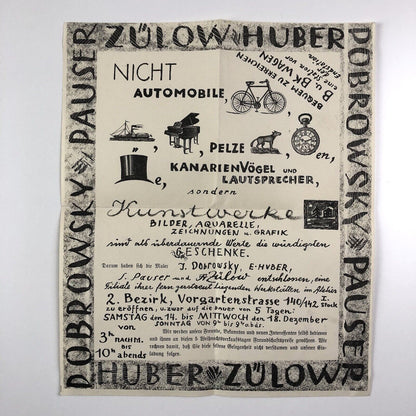 ZÜLOW HUBER
DOBROWSKY
PAUSER
BEQUEM ZU ERREICHEN
B u. BK WAGEN
NICHT
AUTOMOBILE,
„ , PELZE en,
e, KANARIENVÖGEL und
LAUTSPRECHER,
sondern
Kunstwerke
BILDER, AQUARELLE,
ZEICHNUNGEN u. GRAFIK
sind als überdauernde Werte die würdigsten
GESCHENKE.
Darum haben sich die Maler J. Dobrowsky, E. HUBER,
S. Pauser und Zülow entschlossen, eine
Filiale ihrer fern gestreut liegenden Werkstätten im Atelier
2. Bezirk, Vorgartenstrasse 140/142 I. Stock
zu eröffnen, u. zwar auf die Dauer von 5 Tagen:
SAMSTAG den 14. bis MITTWOCH den 18. Dezember
SONNTAG VON 9h bis 9h abds.
von
3h NACHM.
bis
10h abends
Wir werden unsere Freunde, Bekannten und deren Interessenten selbst bedienen
und ihnen an diesen 5 Weihnachtsverkaufstagen Freundschaftspreise gewähren. Wir
rechnen damit, daß Sie diese seltene Gelegenheit nicht versäumen und unserer Ein-
ladung folgen.
DOBROWSKY PAUSER
HUBER ZÜLOW